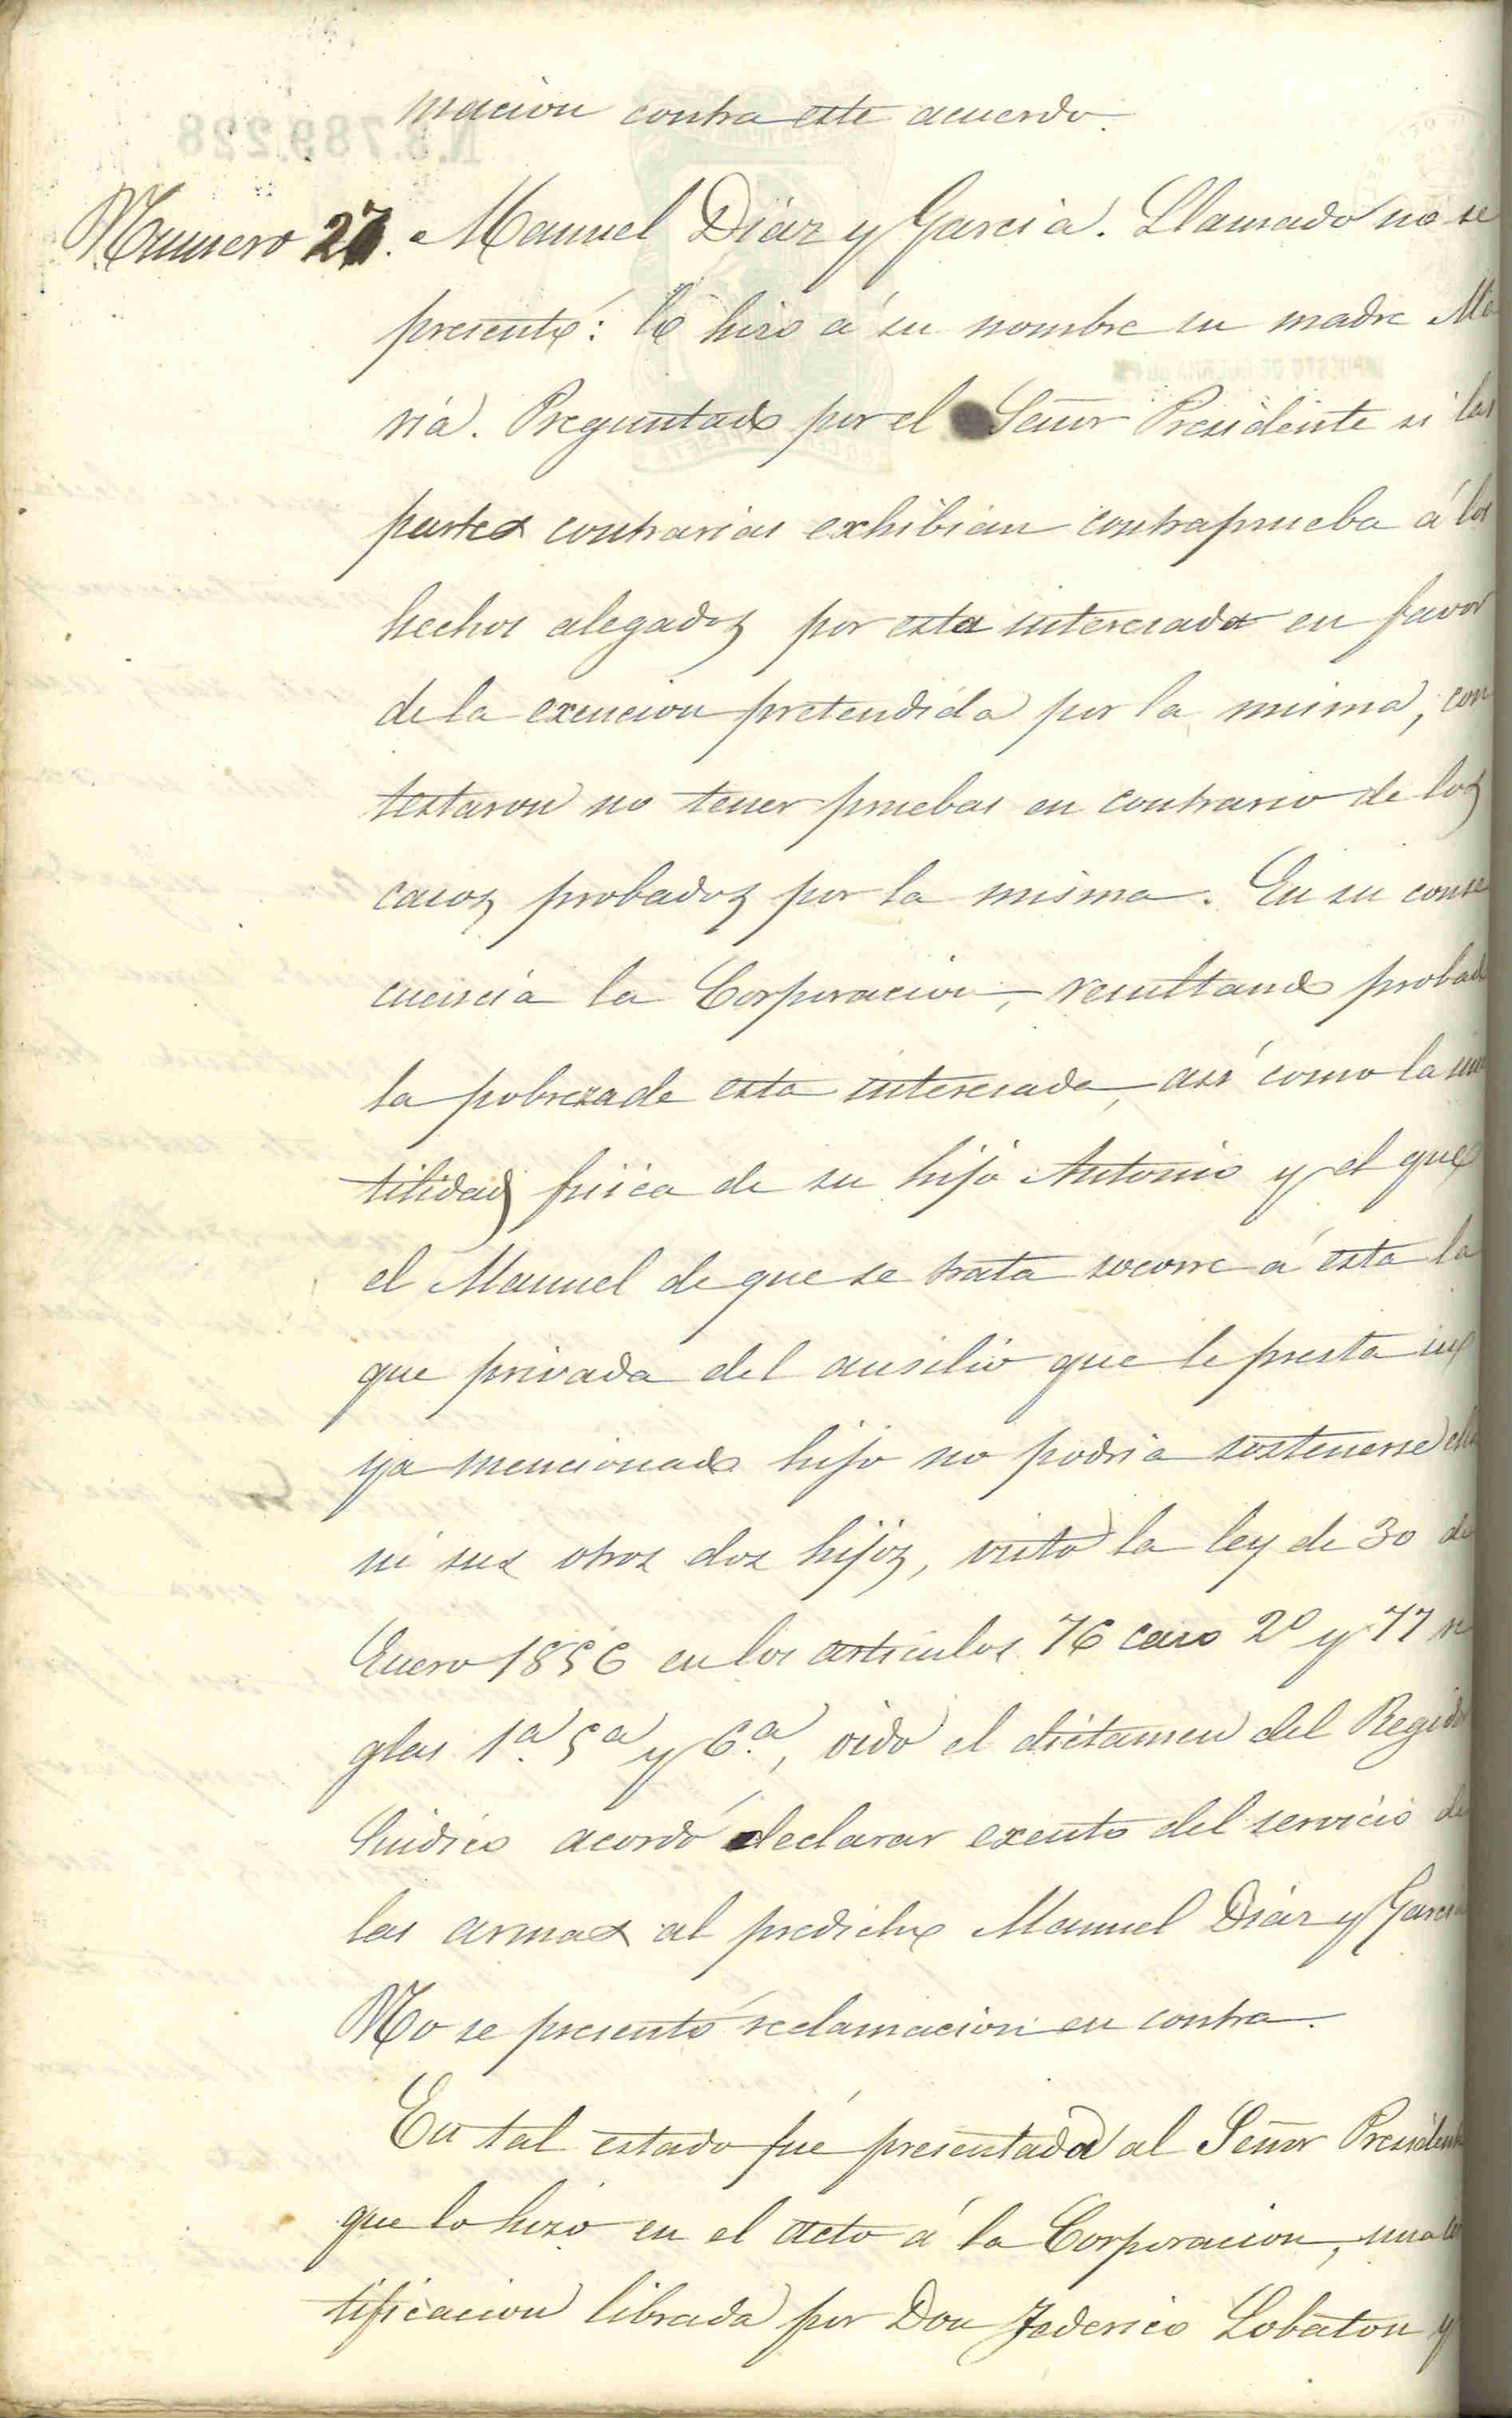 macion contra este acuerdo.
Numero 27. Manuel Diaz y Garcia. Llamado no se
presentó: lo hizo á su nombre su madre Ma
ria. Preguntado por el Señor Presidente si las
partes contrarias exhibian contraprueba á los
hechos alegados por esta interesada en favor
de la exencion pretendida por la misma, con
testaron no tener pruebas en contrario de los
casos probados por la misma. En su conse
cuencia la Corporacion, resultando probada
la pobreza de esta interesada, así como la inu
tilidad fisica de su hijo Antonio y el que
el Manuel de que se trata socorre á esta la
que privada del ausilio que le presta su
ya mencionado hijo no podria sostenerse ella
ni sus otros dos hijos, visto la ley de 30 de
Enero 1856 en los articulos 76 caso 2º y 77 re
glas 1ª. 5ª y 6ª., oido el dictamen del Regidor
Sindico acordó declarar exento del servicio de
las armas al predicho Manuel Diaz y Garcia
No se presentó reclamacion en contra.
En tal estado fué presentada al Señor Presidente
que lo hizo en el acto á la Corporacion, una cer
tificacion librada por Don Federico Lobaton y
N.3.789.228